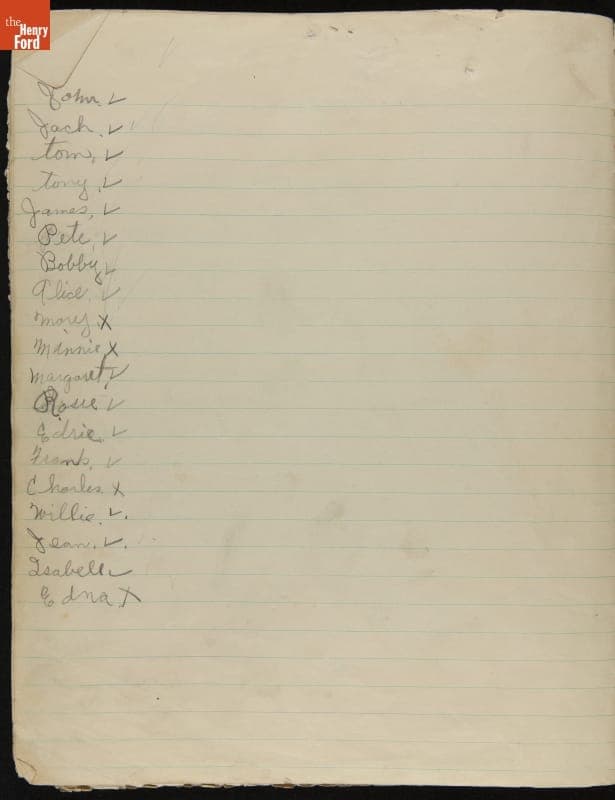 the
Henry
Ford
John. ✓
Jack. ✓
tom. ✓
tony. ✓
James. ✓
Pete. ✓
Bobby ✓
Alice. ✓
Mary. X
Minnie. X
Margaret. ✓
Rosie ✓
Edrie. ✓
Frank. ✓
Charles. X
Willie. ✓.
Jean. ✓.
Isabell ✓
Edna. X